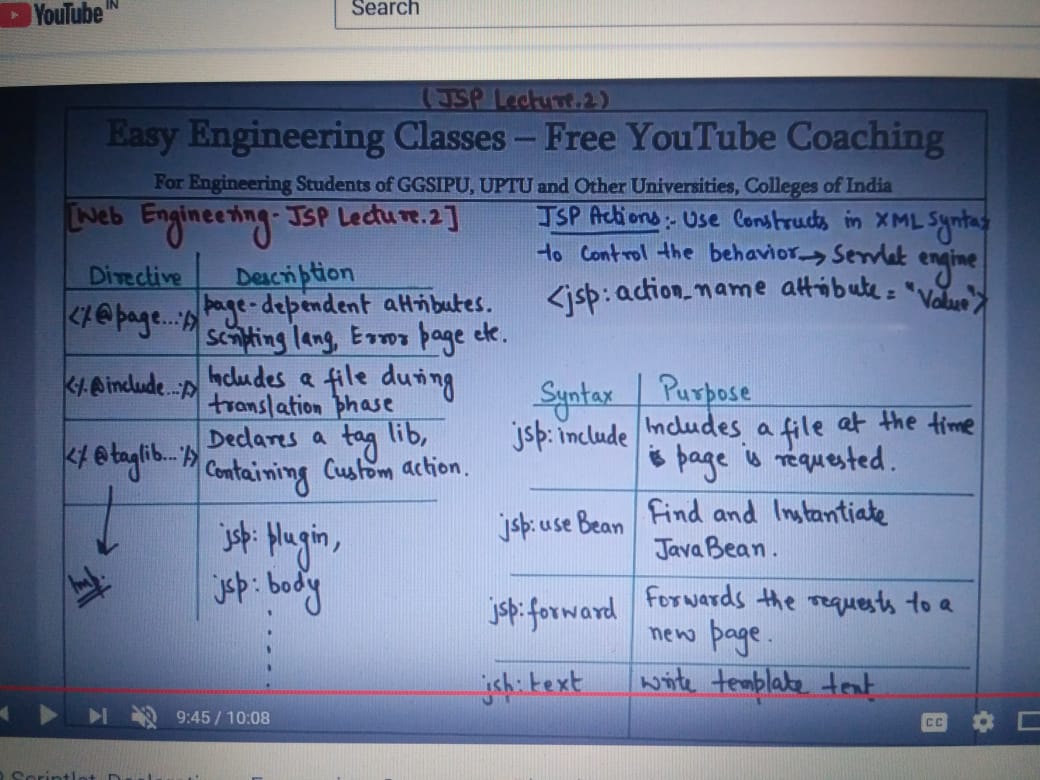 YouTube IN
Search
(JSP Lecture.2)
Easy Engineering Classes – Free YouTube Coaching
For Engineering Students of GGSIPU, UPTU and Other Universities, Colleges of India
[Web Engineering - JSP Lecture.2]
Directive Description
<%@page...%> page-dependent attributes.
scripting lang, Error page etc.
<%@include...%> Includes a file during
translation phase
<%@taglib...%> Declares a tag lib,
Containing Custom action.
Imp.
jsp: plugin,
jsp: body
JSP Actions:- Use Constructs in XML Syntax
to Control the behavior → Servlet engine
<jsp: action_name attribute = "Value">
Syntax Purpose
jsp: include Includes a file at the time
page is requested.
jsp: use Bean Find and Instantiate
JavaBean.
jsp: forward Forwards the requests to a
new page.
jsp: text write template text
9:45 / 10:08
CC